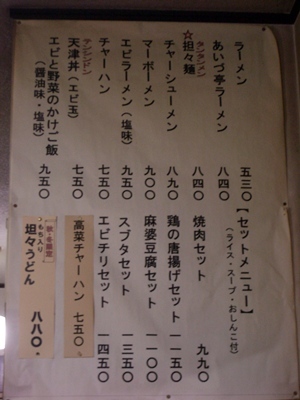 ラーメン 五三〇
あいづ亭ラーメン 八四〇
タンタンメン
☆担々麺 八四〇
チャーシューメン 八九〇
マーボーメン 九〇〇
エビラーメン(塩味) 九五〇
チャーハン 七五〇
テンシンドン
天津丼(エビ玉) 七五〇
エビと野菜のかけご飯 九五〇
(醤油味・塩味)
【セットメニュー】
(ライス・スープ・おしんこ付)
焼肉セット 九九〇
鶏の唐揚げセット 一一五〇
麻婆豆腐セット 一一〇〇
スブタセット 一三五〇
エビチリセット 一四五〇
高菜チャーハン 七五〇
秋・冬限定
もち入り
坦々うどん 八八〇